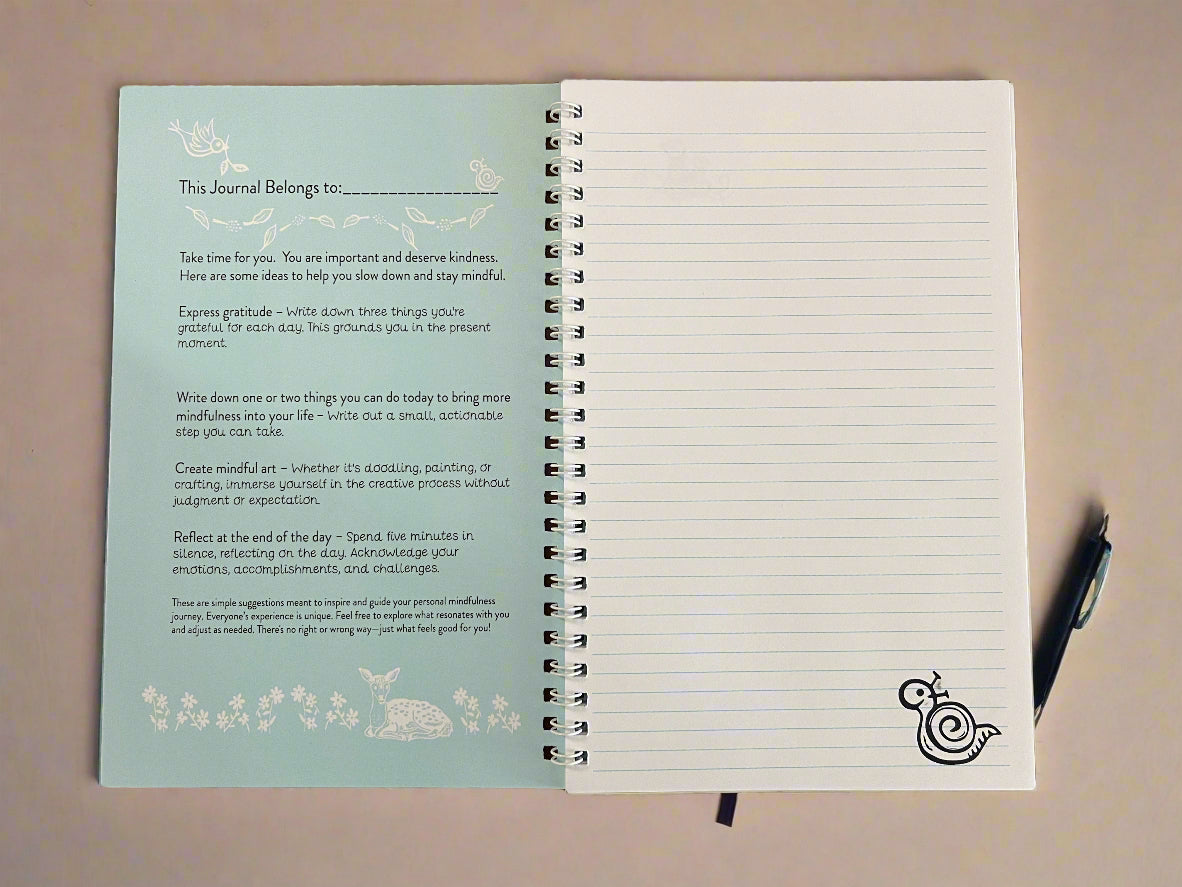 This Journal Belongs to:_________________
Take time for you.  You are important and deserve kindness.
Here are some ideas to help you slow down and stay mindful.
Express gratitude – Write down three things you're
grateful for each day. This grounds you in the present
moment.
Write down one or two things you can do today to bring more
mindfulness into your life – Write out a small, actionable
step you can take.
Create mindful art – Whether it's doodling, painting, or
crafting, immerse yourself in the creative process without
judgment or expectation.
Reflect at the end of the day – Spend five minutes in
silence, reflecting on the day. Acknowledge your
emotions, accomplishments, and challenges.
These are simple suggestions meant to inspire and guide your personal mindfulness
journey. Everyone's experience is unique. Feel free to explore what resonates with you
and adjust as needed. There's no right or wrong way—just what feels good for you!